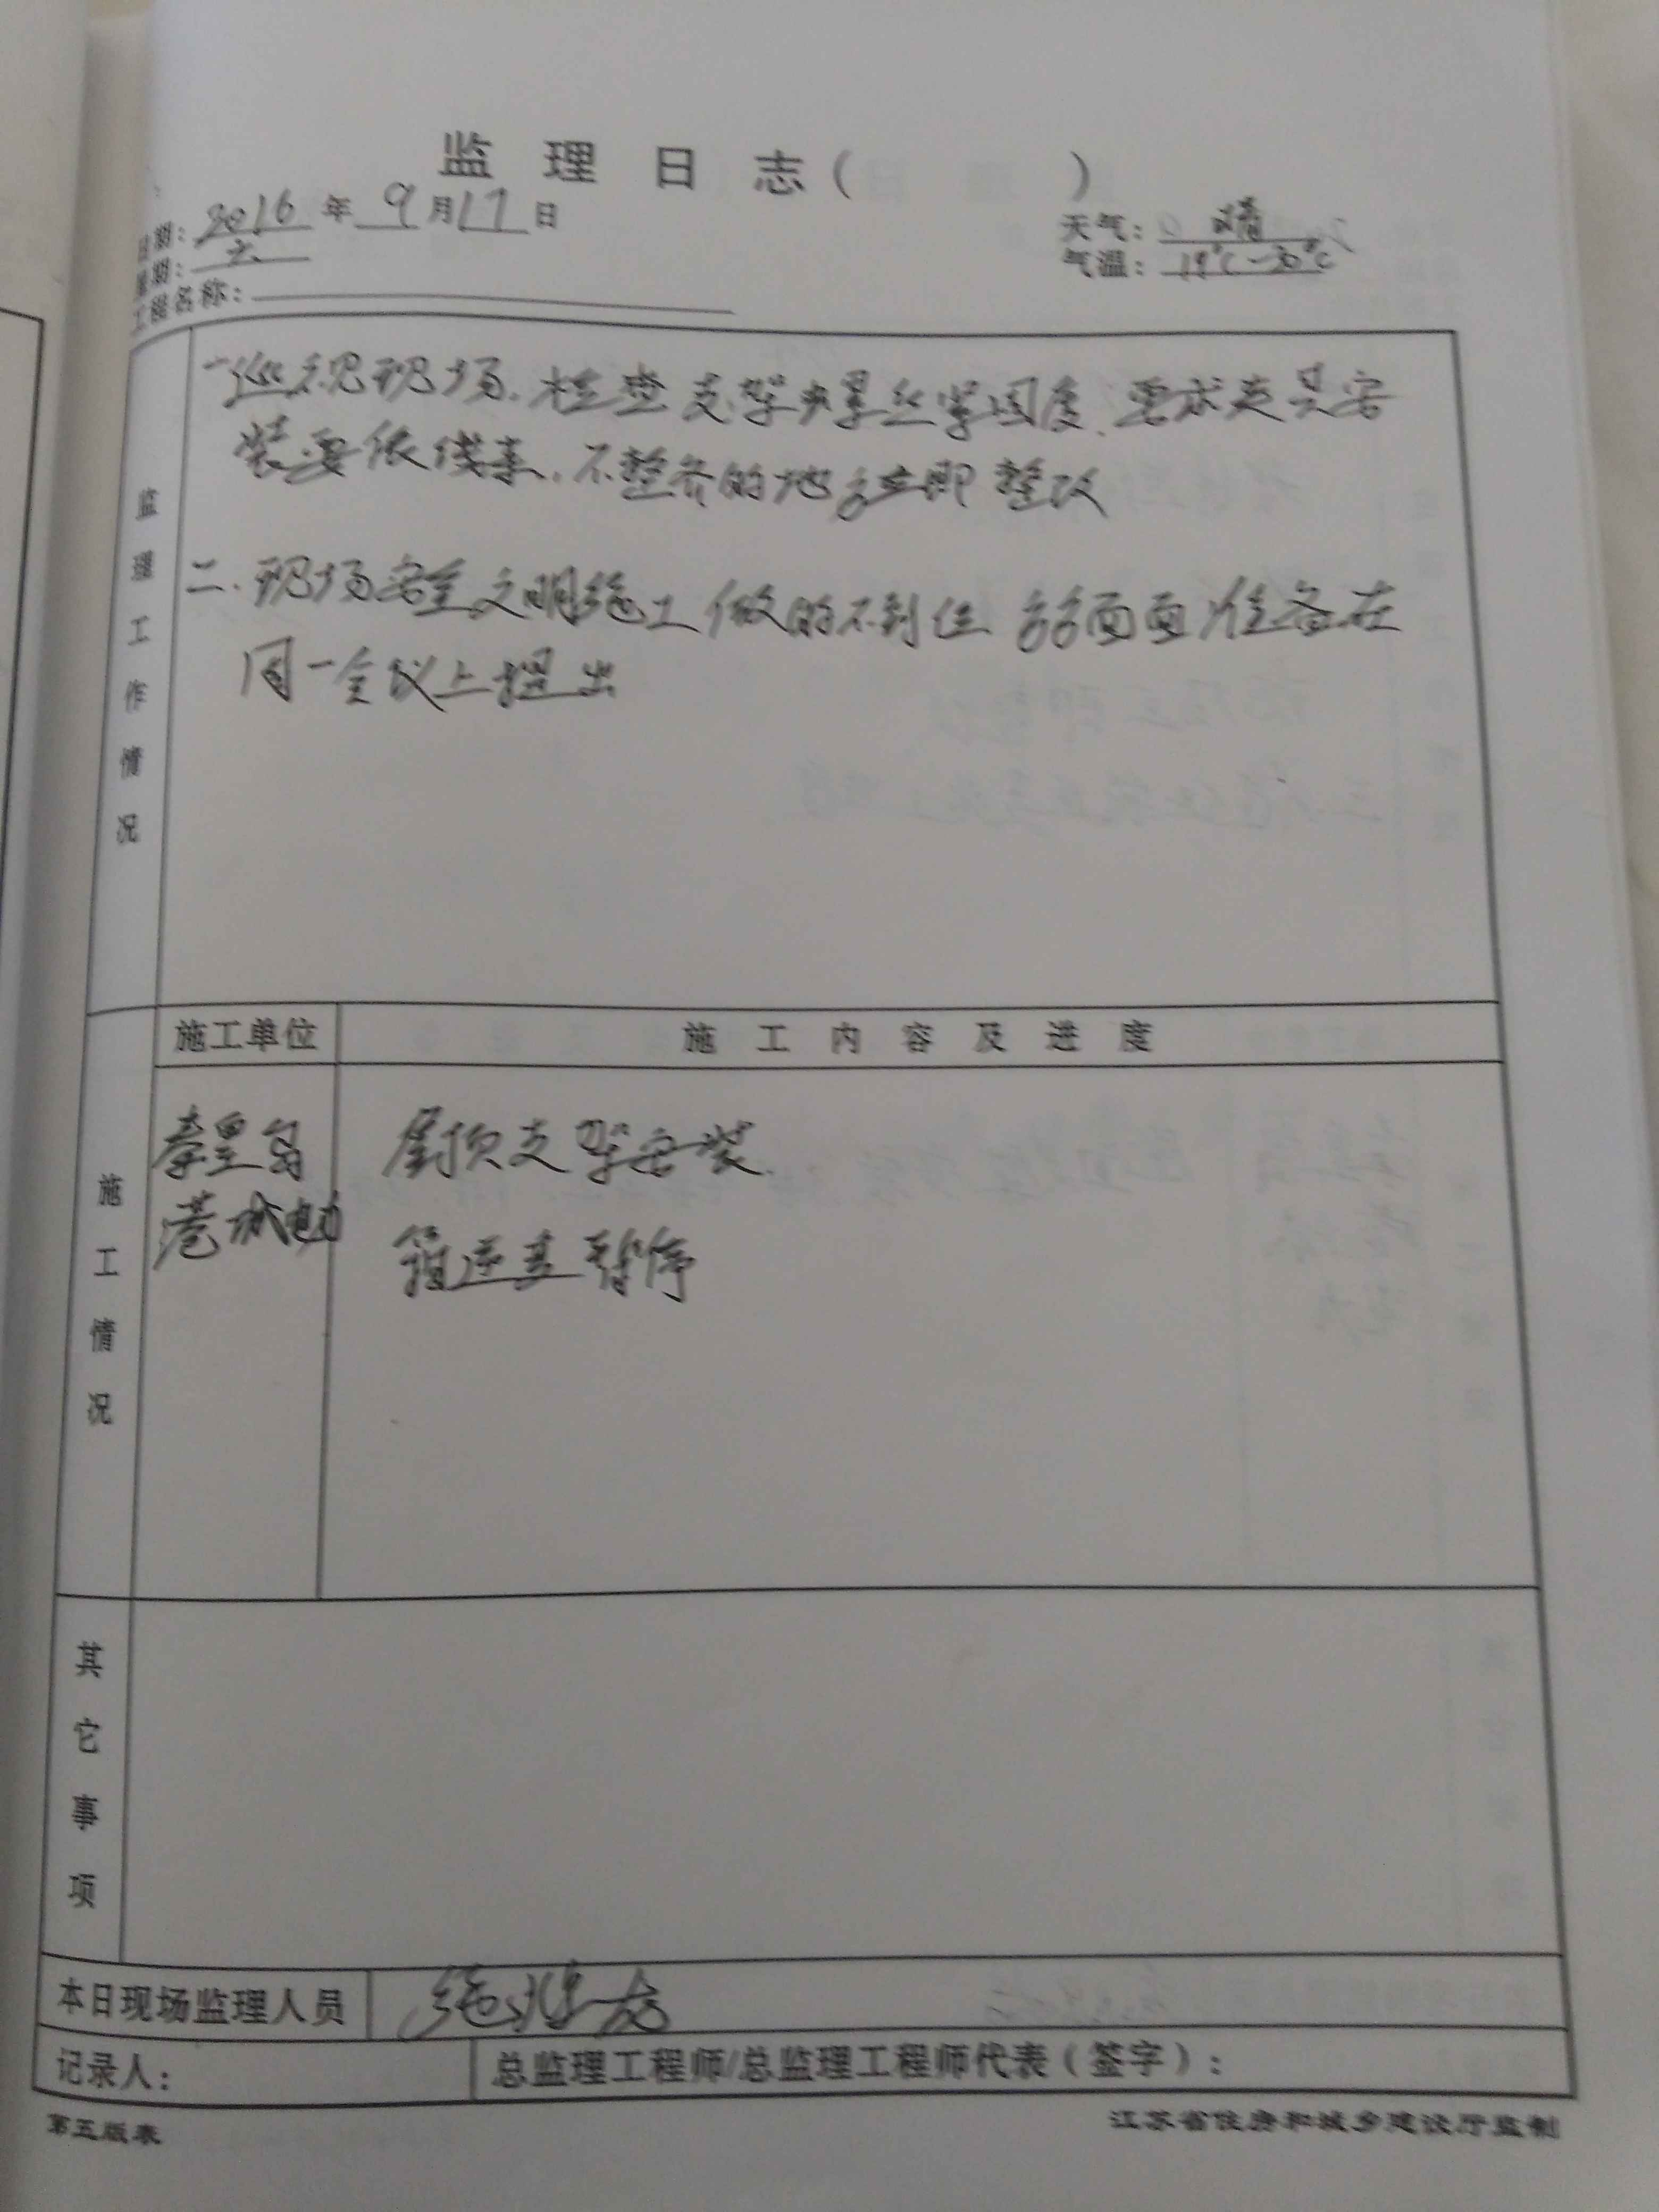 监理日志( )
日期：2016年9月17日
天气：晴
星期：六
气温：19℃-30℃
工程名称：
监理工作情况
一巡视现场.检查支架螺丝紧固度.要求夹具安
装要依线来.不整齐的地方立即整改
二.现场安全文明施工做的不到位 方方面面准备在
周一会议上提出
施工单位
施工内容及进度
施工情况
秦皇岛
港城电力
屋顶支架安装.
暂停
其它事项
本日现场监理人员
记录人：
总监理工程师/总监理工程师代表（签字）：
第五版表
江苏省住房和城乡建设厅监制